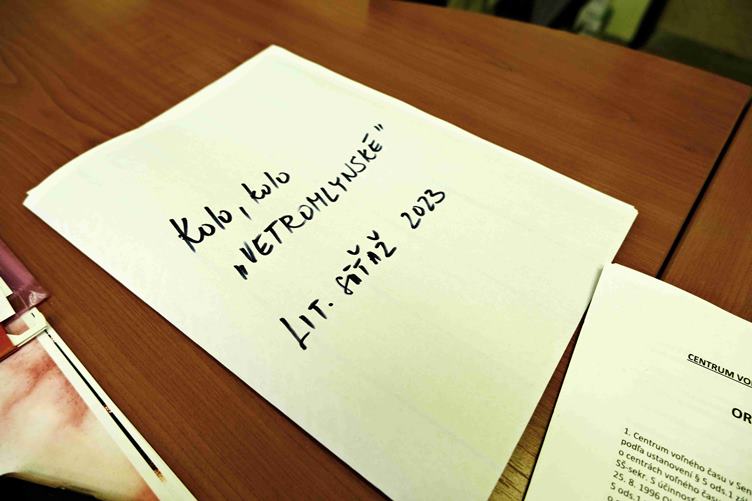 Kolo, kolo
„VETROMLYNSKÉ"
LIT. SÚŤAŽ 2023
CENTRUM VO
OR
1. Centrum voľného času v Sen
podľa ustanovení § 5 ods.1
o centrách voľného čas
SŠ-sekr. S účinnosť
25. 8. 1996
5 ods.1